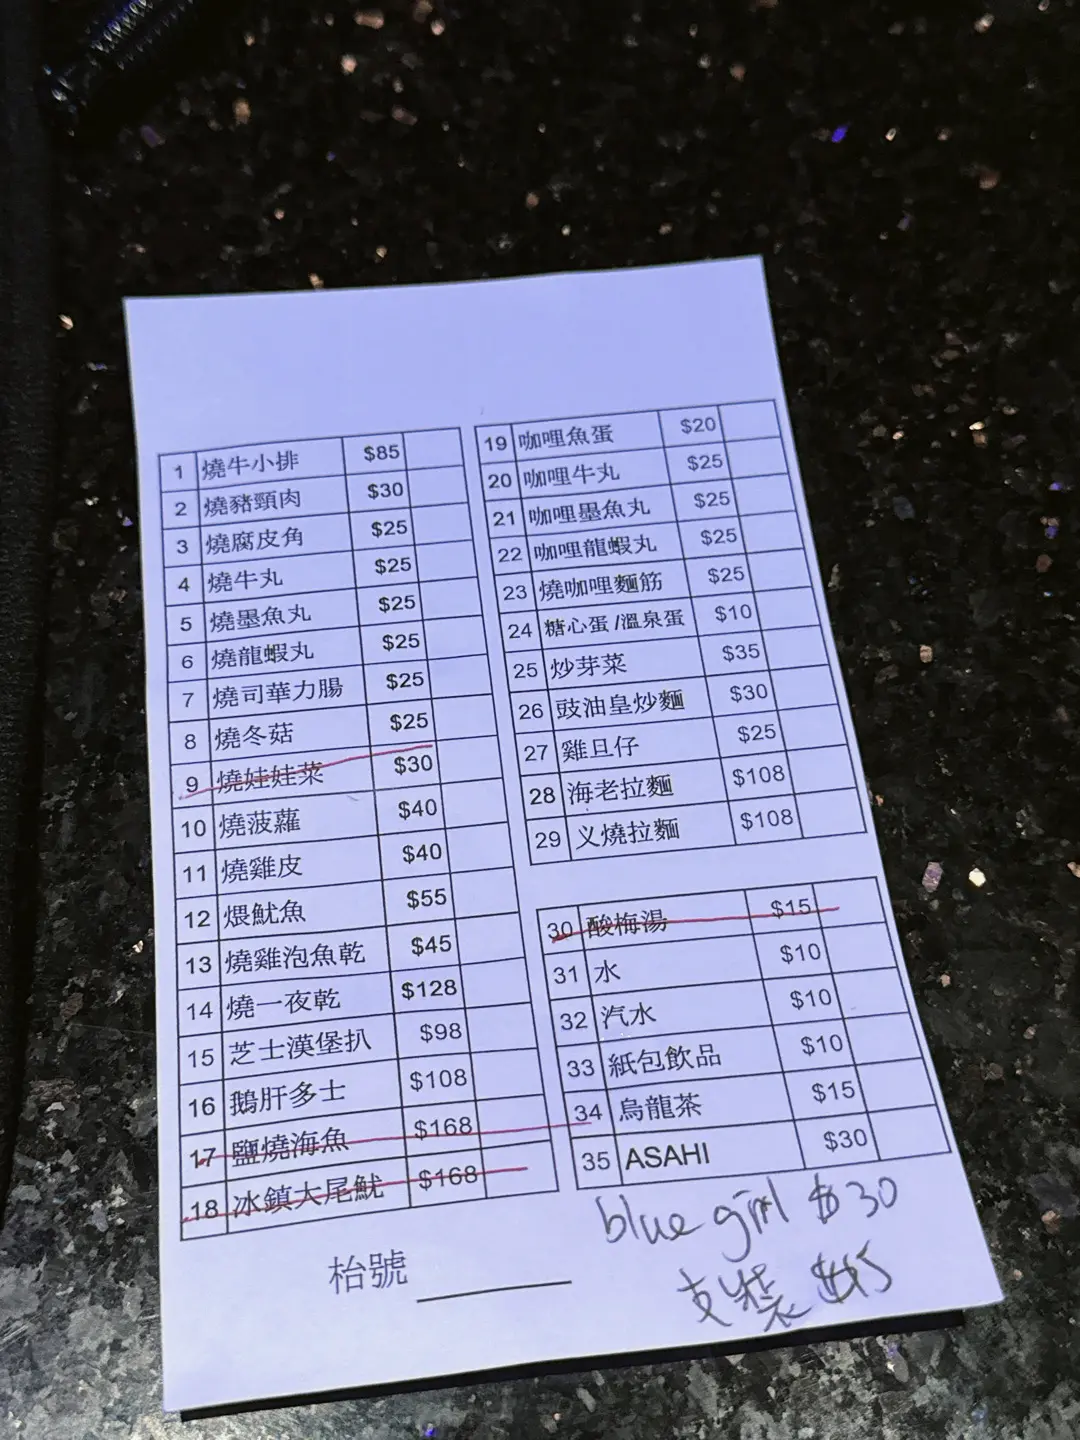 1 燒牛小排 $85
2 燒豬頸肉 $30
3 燒腐皮角 $25
4 燒牛丸 $25
5 燒墨魚丸 $25
6 燒龍蝦丸 $25
7 燒司華力腸 $25
8 燒冬菇 $25
9 燒娃娃菜 $30
10 燒菠蘿 $40
11 燒雞皮 $40
12 煨魷魚 $55
13 燒雞泡魚乾 $45
14 燒一夜乾 $128
15 芝士漢堡扒 $98
16 鵝肝多士 $108
17 鹽燒海魚 $168
18 冰鎮大尾魷 $168
19 咖哩魚蛋 $20
20 咖哩牛丸 $25
21 咖哩墨魚丸 $25
22 咖哩龍蝦丸 $25
23 燒咖哩麵筋 $25
24 糖心蛋/溫泉蛋 $10
25 炒芽菜 $35
26 豉油皇炒麵 $30
27 雞旦仔 $25
28 海老拉麵 $108
29 义燒拉麵 $108
30 酸梅湯 $15
31 水 $10
32 汽水 $10
33 紙包飲品 $10
34 烏龍茶 $15
35 ASAHI $30
blue girl $30
支裝
枱號